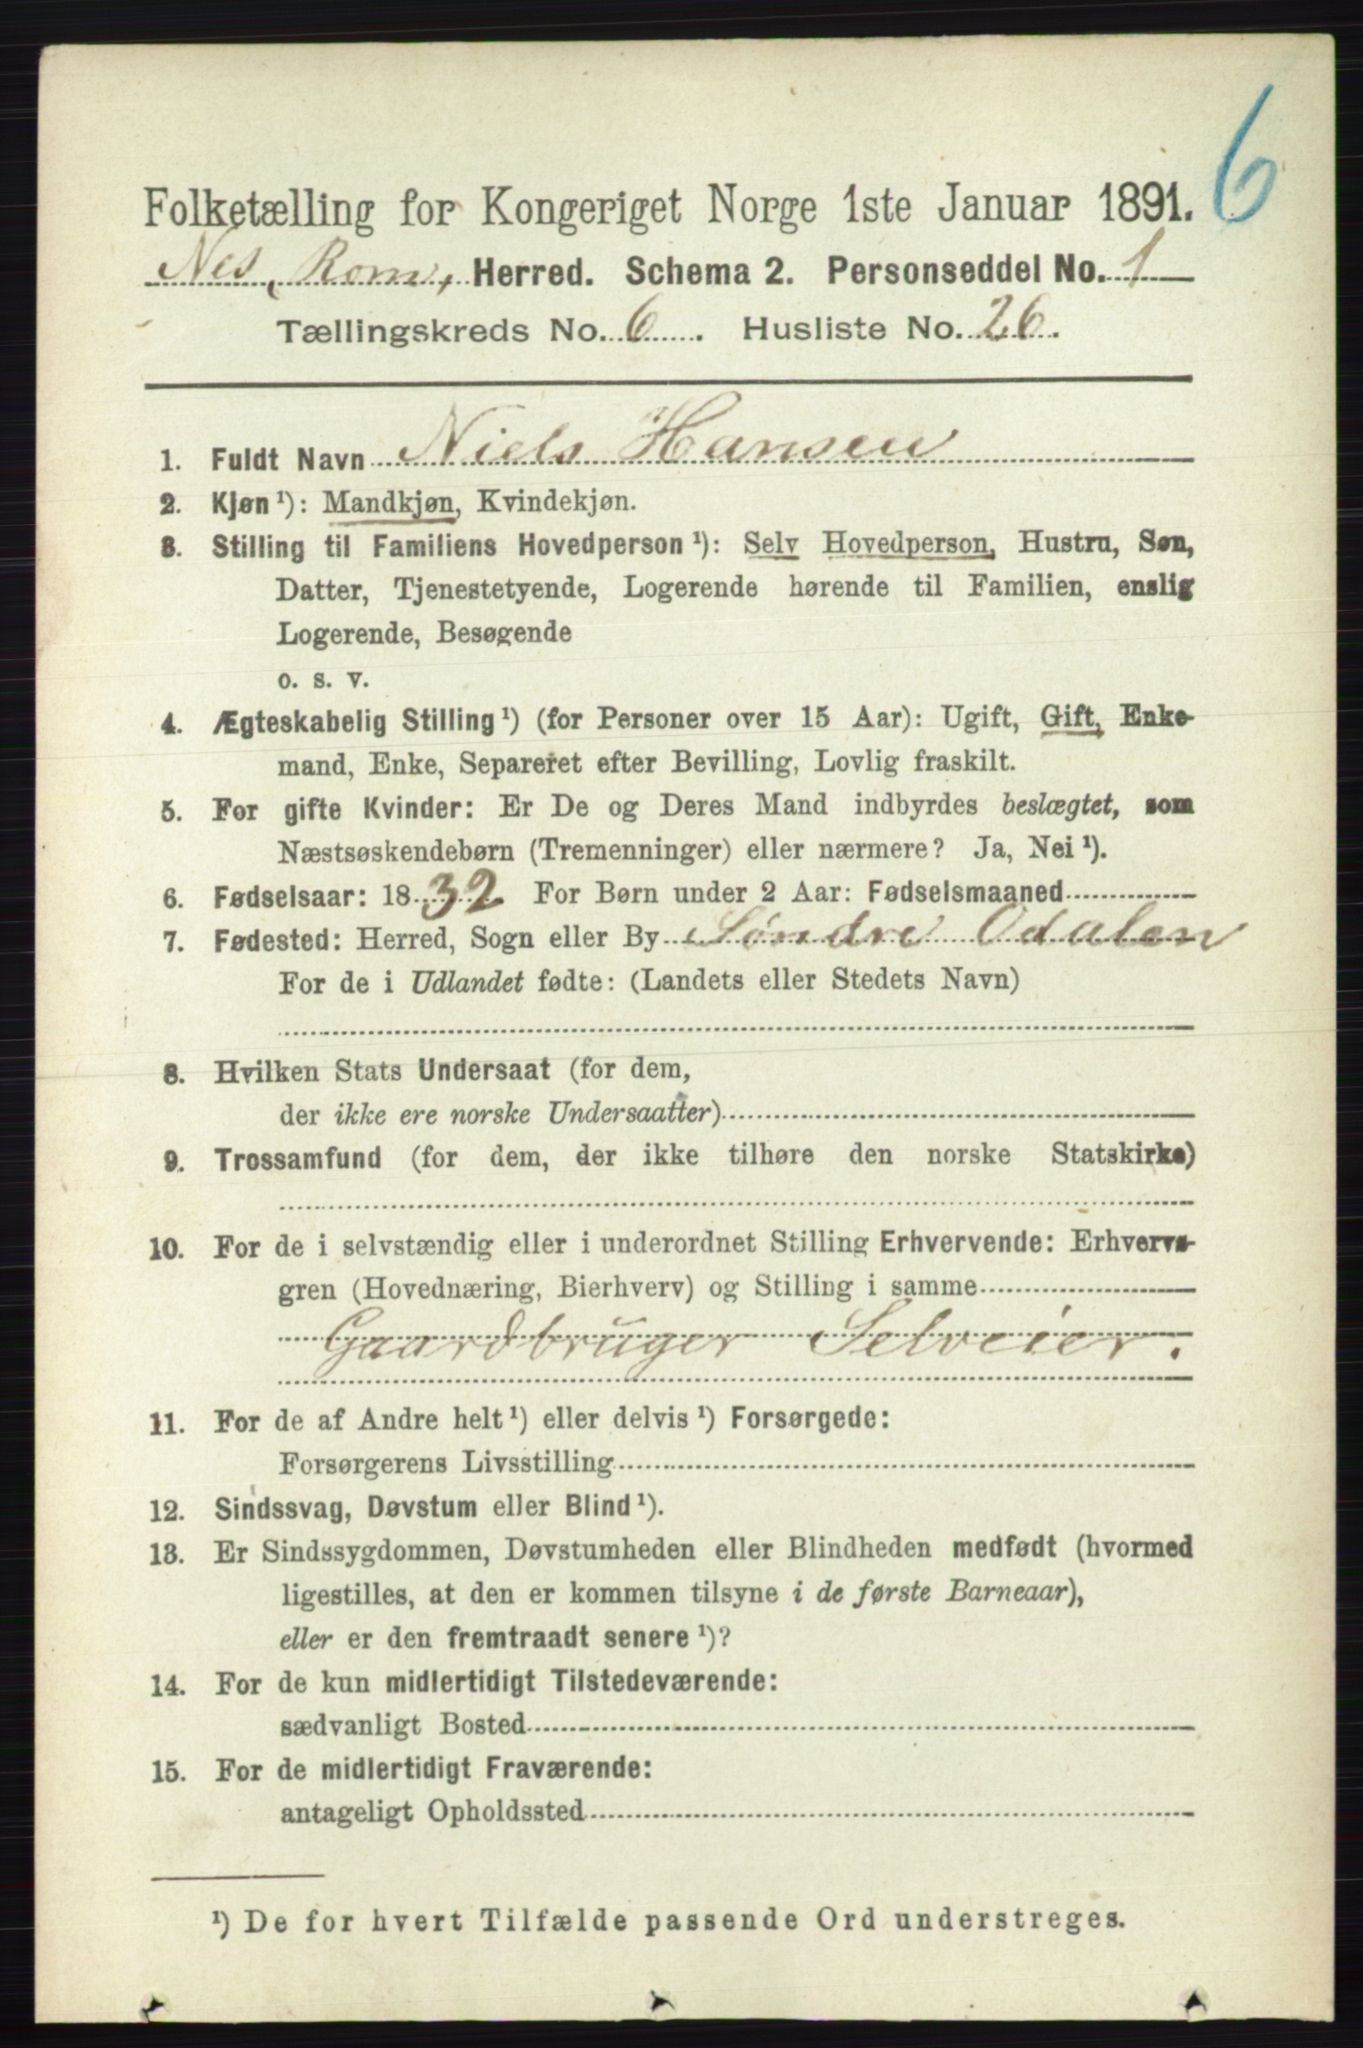 6
Folketælling for Kongeriget Norge 1ste Januar 1891.
Nes, Rom, Herred. Schema 2. Personseddel No. 1
Tællingskreds No. 6. Husliste No. 26.
1. Fuldt Navn Niels Hansen
2. Kjøn¹): Mandkjøn, Kvindekjøn.
3. Stilling til Familiens Hovedperson¹): Selv Hovedperson, Hustru, Søn,
Datter, Tjenestetyende, Logerende hørende til Familien, enslig
Logerende, Besøgende
o. s. v.
4. Ægteskabelig Stilling¹) (for Personer over 15 Aar): Ugift, Gift, Enke-
mand, Enke, Separeret efter Bevilling, Lovlig fraskilt.
5. For gifte Kvinder: Er De og Deres Mand indbyrdes beslægtet, som
Næstsøskendebørn (Tremenninger) eller nærmere? Ja, Nei¹).
6. Fødselsaar: 1832 For Børn under 2 Aar: Fødselsmaaned
7. Fødested: Herred, Sogn eller By Søndre Odalen
For de i Udlandet fødte: (Landets eller Stedets Navn)
8. Hvilken Stats Undersaat (for dem,
der ikke ere norske Undersaatter)
9. Trossamfund (for dem, der ikke tilhøre den norske Statskirke)
10. For de i selvstændig eller i underordnet Stilling Erhvervende: Erhvervs-
gren (Hovednæring, Bierhverv) og Stilling i samme
Gaardbruger Selveier.
11. For de af Andre helt¹) eller delvis¹) Forsørgede:
Forsørgerens Livsstilling
12. Sindssvag, Døvstum eller Blind¹).
13. Er Sindssygdommen, Døvstumheden eller Blindheden medfødt (hvormed
ligestilles, at den er kommen tilsyne i de første Barneaar),
eller er den fremtraadt senere¹)?
14. For de kun midlertidigt Tilstedeværende:
sædvanligt Bosted
15. For de midlertidigt Fraværende:
antageligt Opholdssted
¹) De for hvert Tilfælde passende Ord understreges.